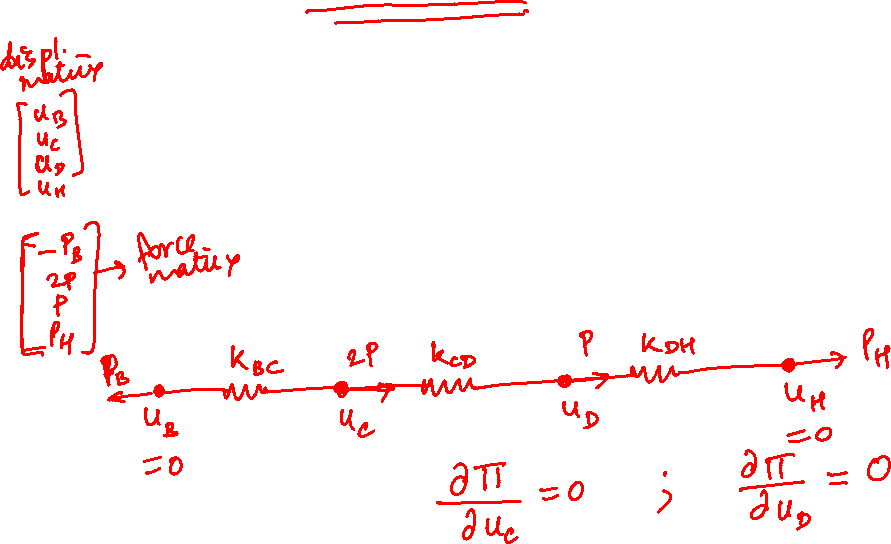 displ. matrix
[u_B
u_C
u_D
u_H]
[-P_B
2P
P
P_H] → force matrix
P_B K_BC 2P K_CD P K_DH P_H
u_B u_C u_D u_H
=0 =0
∂Π/∂u_C = 0 ; ∂Π/∂u_D = 0